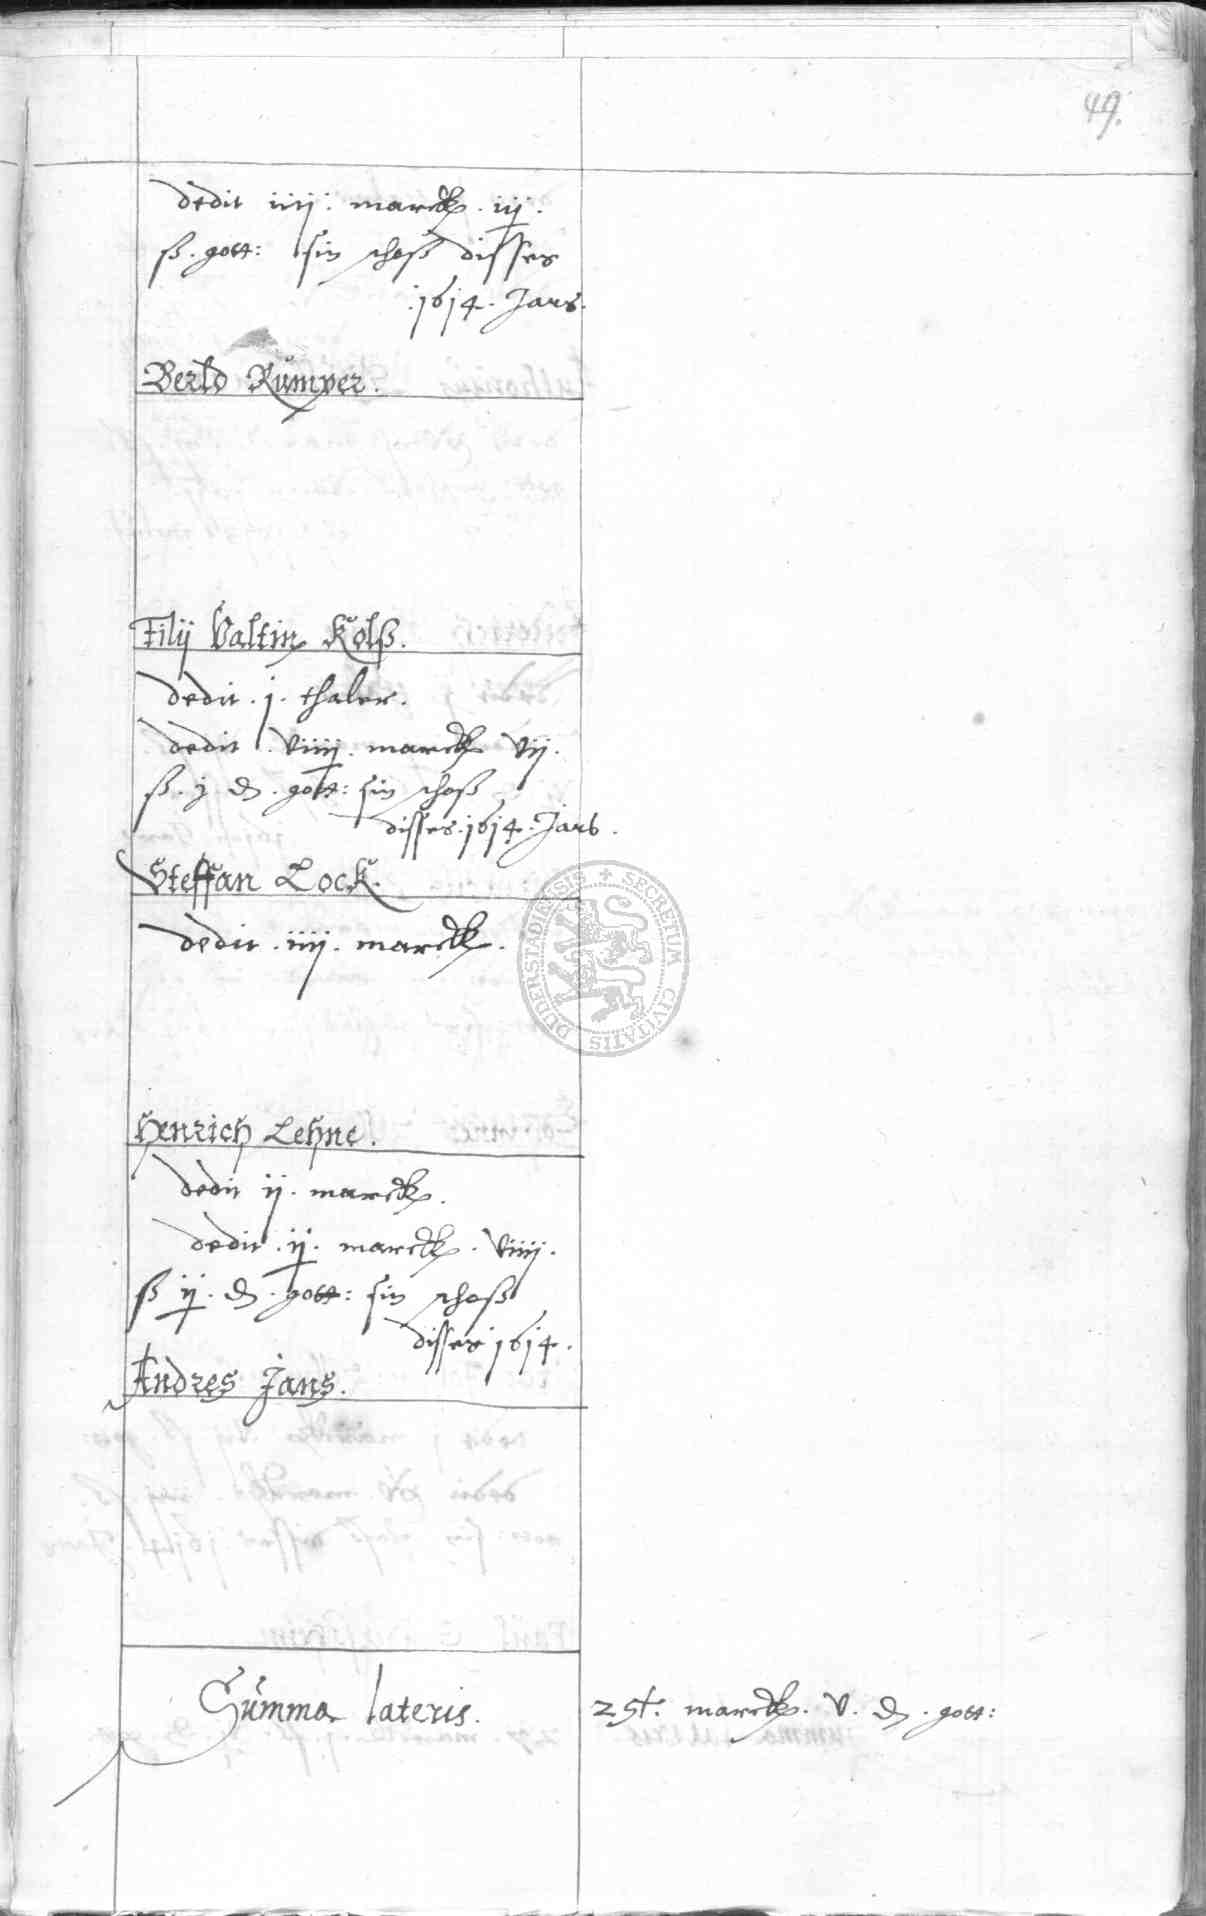 49.
dedit iiij. marck. iij.
ß. gott: sin schoß disses
.1614. Jars.
Berld Rümper.
Filij Valtin Kolß.
dedit .j. thaler.
dedit .viiij. marck vij.
ß. j. ₰. gott: sin schoß
disses .1614. Jars.
Steffan Lock.
dedit .iiij. marck.
Henrich Lehne.
dedit ij. marck.
dedit .ij. marck. viiij.
ß ij. ₰. gott: sin schoß
disses 1614.
Andres Jans.
Summa lateris. marck. v. ₰. gott:
SECRETUM CIVITATIS DUDERSTADIENSIS